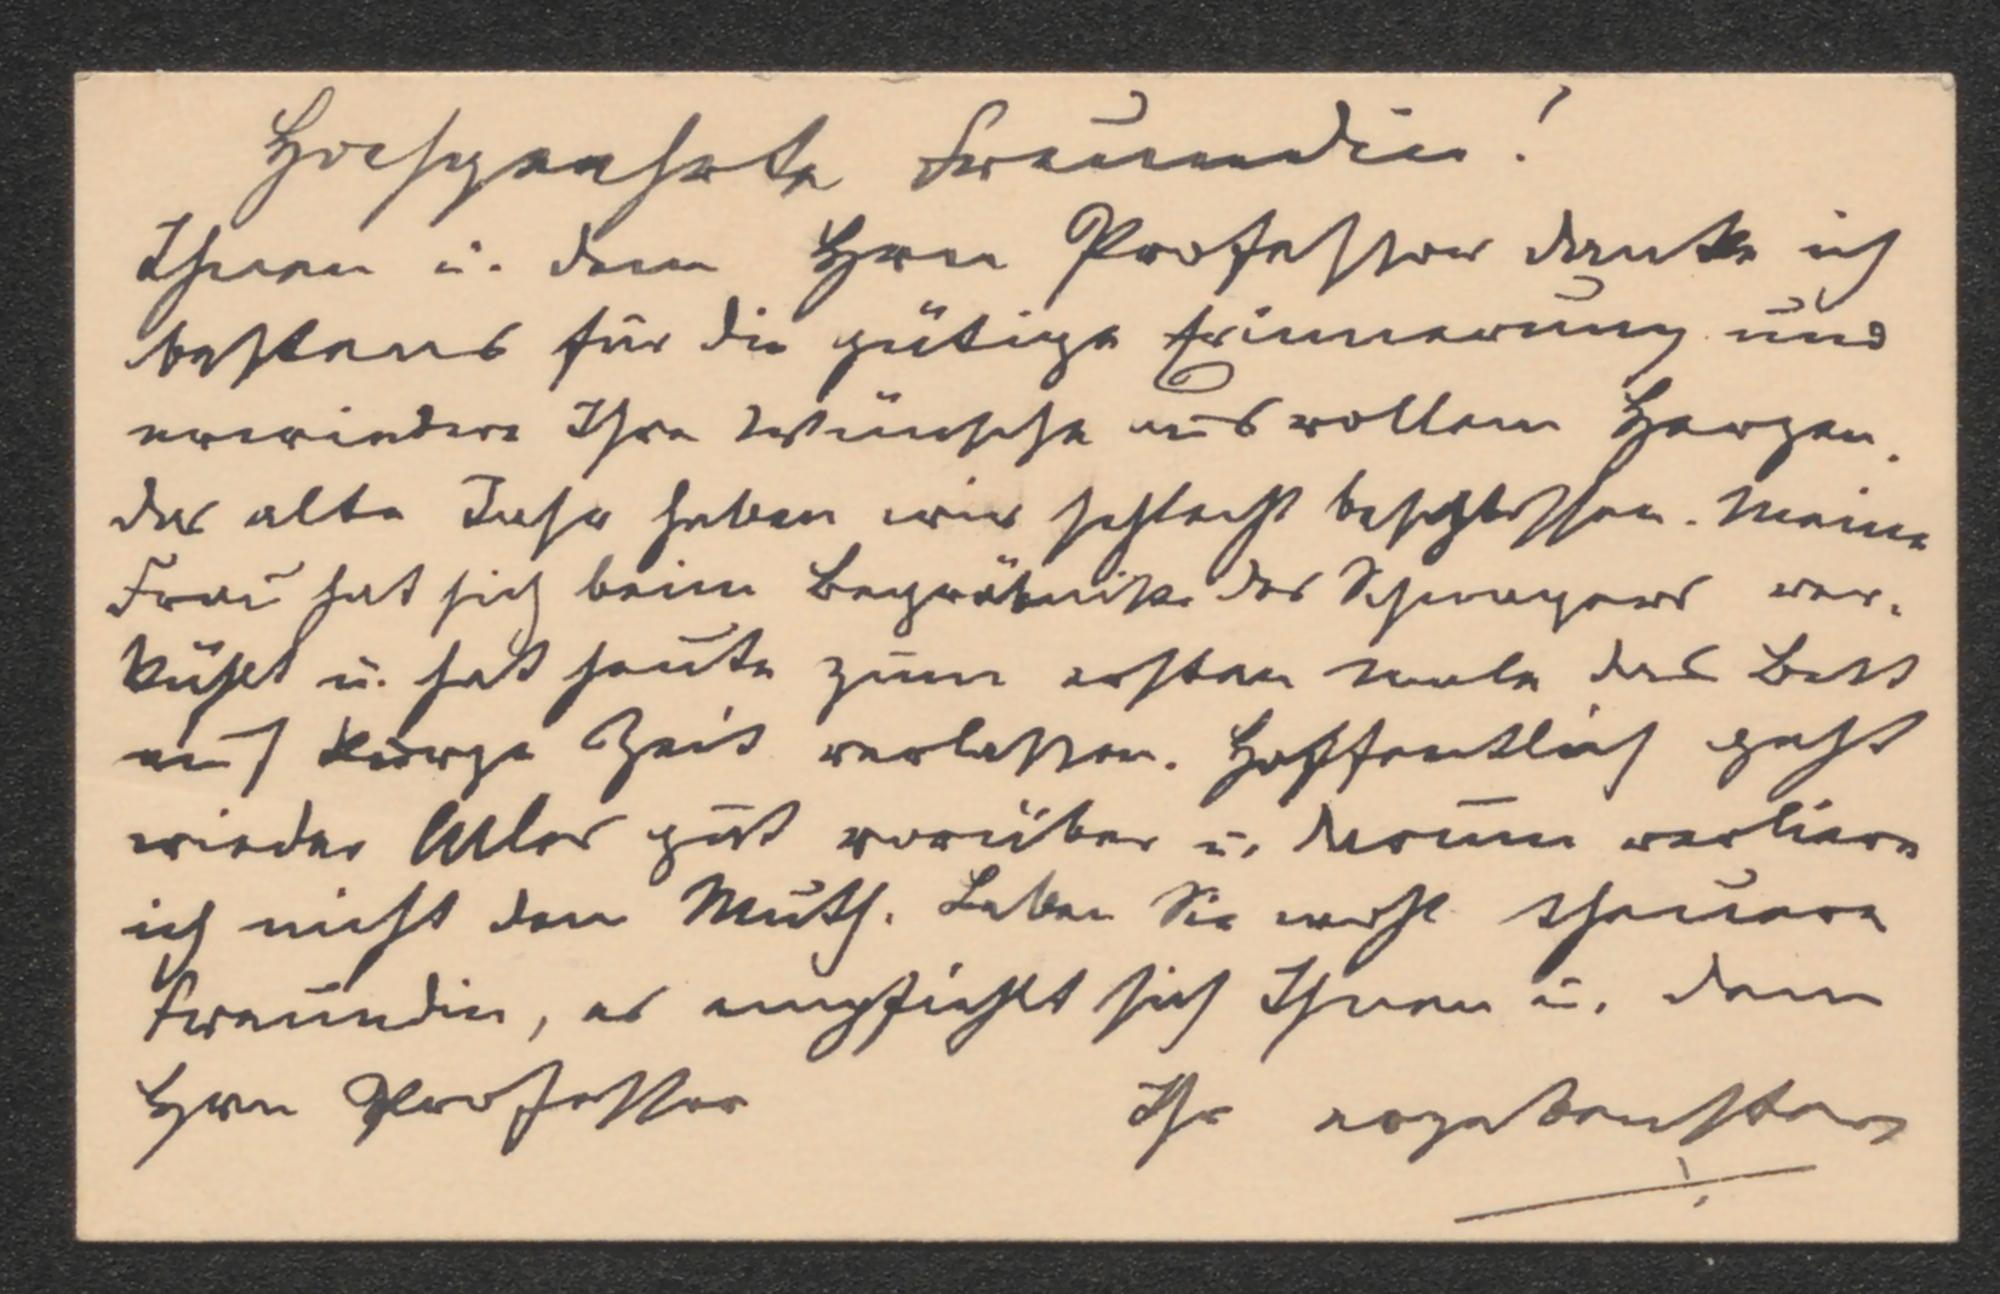 Hochgeehrte Freundin!
Ihnen u. dem Hrn Professor danke ich
bestens für die gütige Erinnerung und
erwiedere Ihre Wünsche aus vollem Herzen.
das alte Jahr haben wir schlecht beschlossen. Meine
Frau hat sich beim Begräbniße des Schwagers ver-
kühlt u. hat heute zum ersten Male das Bett
auf kurze Zeit verlassen. Hoffentlich geht
wieder Alles gut vorüber u. darum verliere
ich nicht den Muth. Leben Sie wohl theuere
Freundin, es empfiehlt sich Ihnen u. dem
Hrn Professor Ihr ergebenster